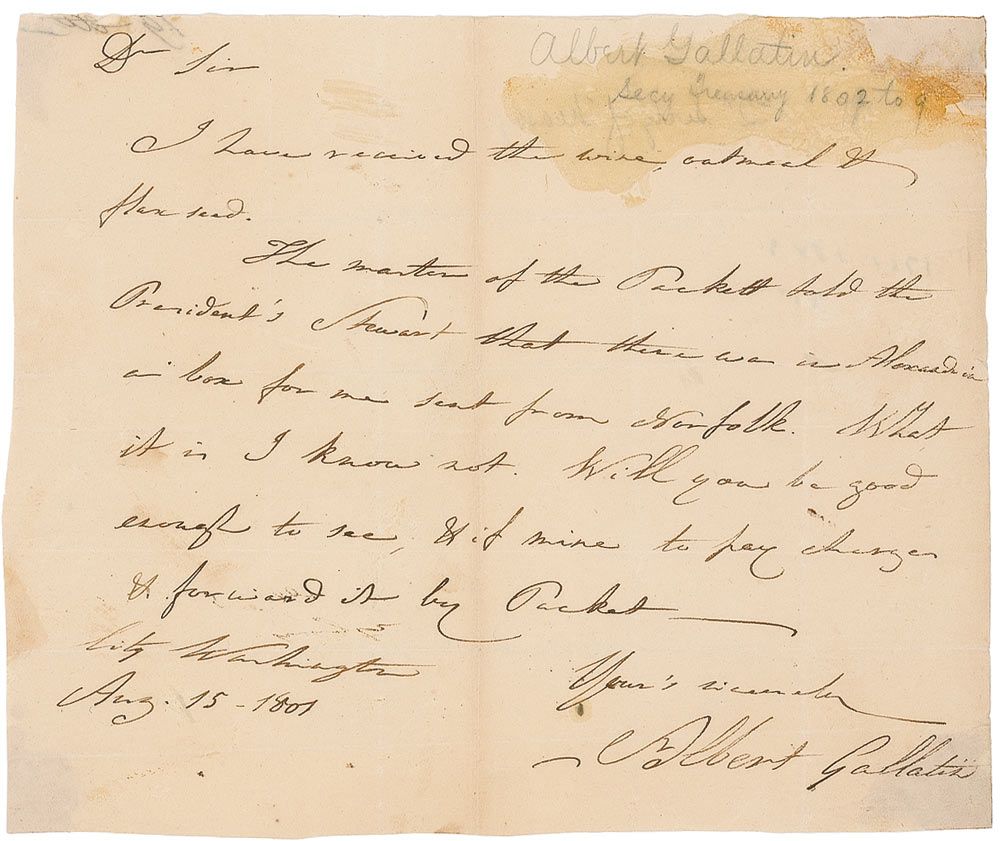 Albert Gallatin.
Secy Treasury 1802 to 9
Dr Sir
I have received the wine, oatmeal &
flax seed.
The master of the Packett told the
President's Stewart that there was in Alexandria
a box for me sent from Norfolk. What
it is I know not. Will you be good
enough to see, & if mine to pay charges
& forward it by Packet
City Washington
Aug. 15 - 1801
Your's sincerely
Albert Gallatin